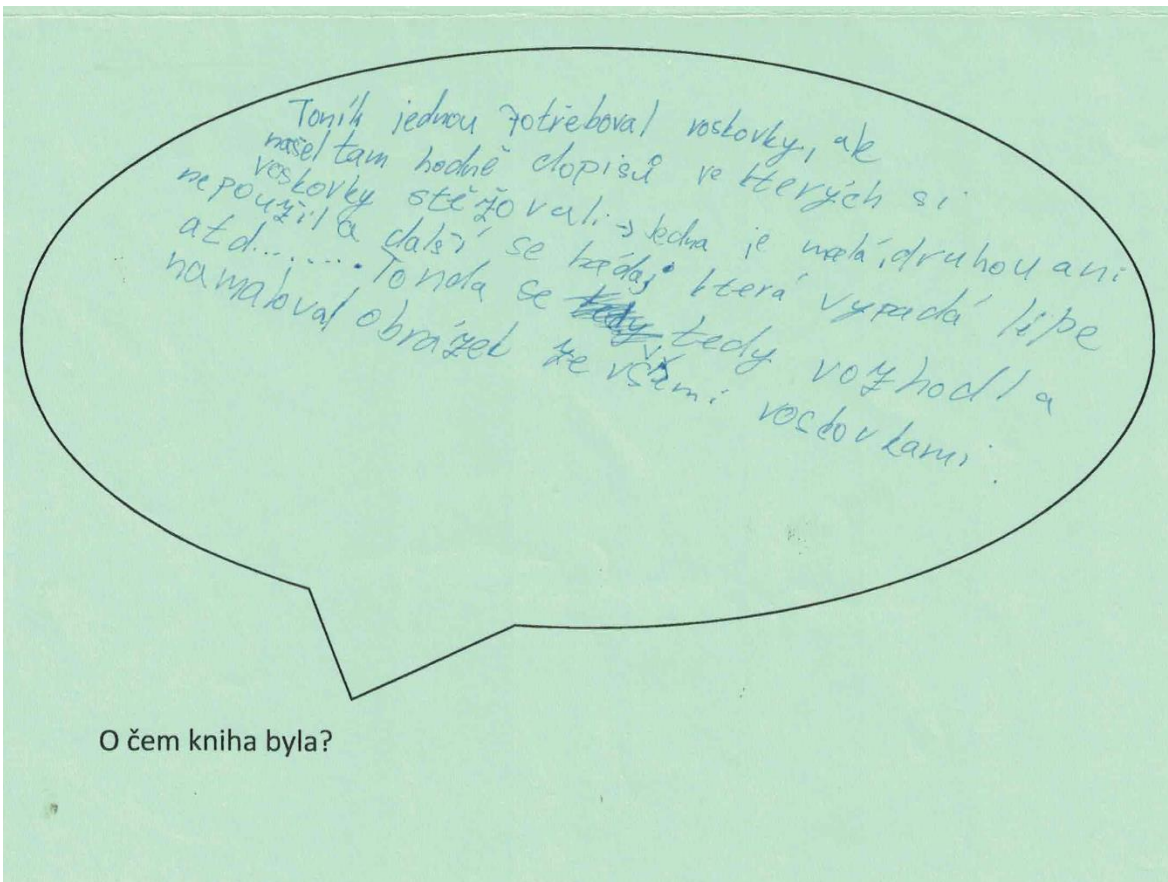 Toník jednou potřeboval voskovky, ale
našel tam hodně dopisů ve kterých si
voskovky stěžovali → Jedna je malá, druhou ani
nepoužil a další se hádaj která vypadá lípe
atd....... Tonda se tedy vozhodl a
namaloval obrázek ze všemi voskovkami.
O čem kniha byla?